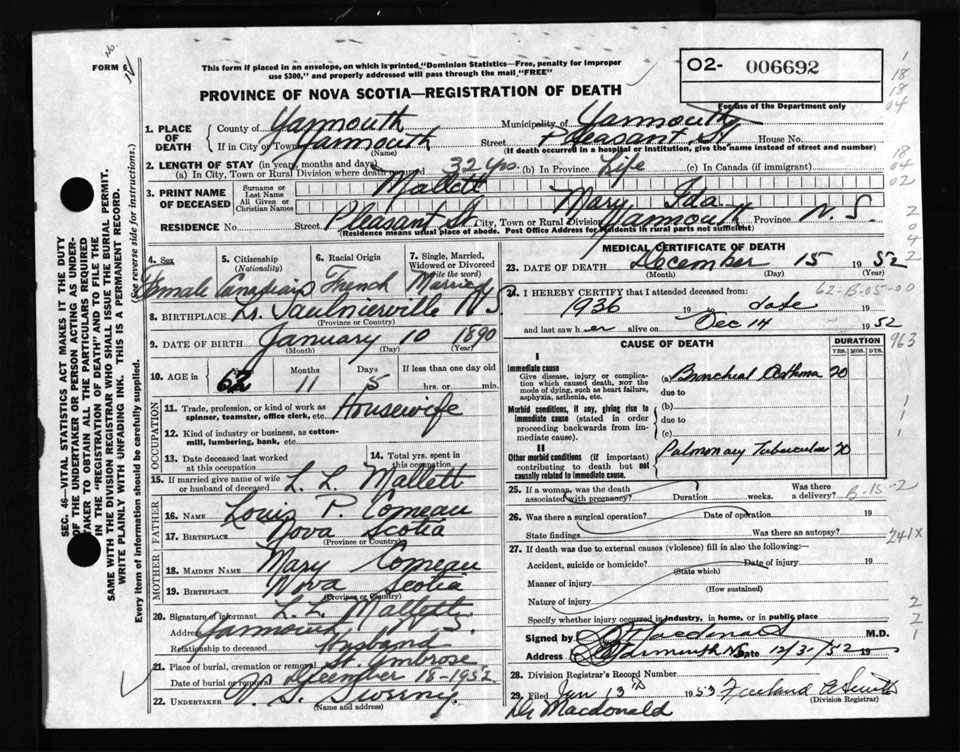 No.
FORM
This form if placed in an envelope, on which is printed "Dominion Statistics—Free, penalty for improper
use $300," and properly addressed will pass through the mail "FREE"
PROVINCE OF NOVA SCOTIA—REGISTRATION OF DEATH
O2- 006692
For use of the Department only
1. PLACE OF DEATH { County of Yarmouth Municipality of Yarmouth
If in City or Town Yarmouth (Name) Street Pleasant St. House No.
(If death occurred in a hospital or institution, give the name instead of street and number)
2. LENGTH OF STAY (in years, months and days)
(a) In City, Town or Rural Division where death occurred 32 yrs. (b) In Province Life (c) In Canada (if immigrant)
3. PRINT NAME OF DECEASED { Surname or Last Name Mallett
All Given or Christian Names Mary Ida
RESIDENCE No. Street Pleasant St City, Town or Rural Division Yarmouth Province N. S.
(Residence means usual place of abode. Post Office Address for residents in rural parts not sufficient)
4. Sex 5. Citizenship (Nationality) 6. Racial Origin 7. Single, Married, Widowed or Divorced (Write the word)
Female Canadian French Married
8. BIRTHPLACE Lr. Saulnierville N S
(Province or Country)
9. DATE OF BIRTH January 10 1890
(Month) (Day) (Year)
10. AGE in { Years Months Days If less than one day old
62 11 5 hrs. or min.
OCCUPATION
11. Trade, profession, or kind of work as spinner, teamster, office clerk, etc. Housewife
12. Kind of industry or business, as cotton-mill, lumbering, bank, etc.
13. Date deceased last worked at this occupation 14. Total yrs. spent in this occupation
15. If married give name of wife or husband of deceased L. L. Mallett
FATHER
16. NAME Louis P. Comeau
17. BIRTHPLACE Nova Scotia
(Province or Country)
MOTHER
18. MAIDEN NAME Mary Comeau
19. BIRTHPLACE Nova Scotia
(Province or Country)
20. Signature of informant L. L. Mallett
Address Yarmouth, N. S.
Relationship to deceased Husband
21. Place of burial, cremation or removal St. Ambrose
Date of burial or removal December 18-1952
22. UNDERTAKER V. S. Sweeney
(Name and address)
MEDICAL CERTIFICATE OF DEATH
23. DATE OF DEATH December 15 1952
(Month) (Day) (Year)
24. I HEREBY CERTIFY that I attended deceased from: 62-B-05-00
1936 19 to date 19
and last saw her alive on Dec 14 1952
CAUSE OF DEATH DURATION
YRS. MOS. DYS.
963
I
Immediate cause
Give disease, injury or complication which caused death, not the mode of dying, such as heart failure, asphyxia, asthenia, etc.
(a) Bronchial Asthma 20
due to
Morbid conditions, if any, giving rise to immediate cause (stated in order proceeding backwards from immediate cause).
(b)
due to
(c)
II
Other morbid conditions (if important) contributing to death but not causally related to immediate cause.
Pulmonary Tuberculosis 20
25. If a woman, was the death associated with pregnancy? Duration weeks. Was there a delivery? B-15-2
26. Was there a surgical operation? Date of operation 19
State findings Was there an autopsy? 241X
27. If death was due to external causes (violence) fill in also the following:—
Accident, suicide or homicide? Date of injury 19
(State which)
Manner of injury
(How sustained)
Nature of injury
Specify whether injury occurred in industry, in home, or in public place
Signed by Macdonald M.D.
Address Yarmouth NS 12/31/52 19
28. Division Registrar's Record Number
29. Filed Jan 13th 1953
(Division Registrar)
Dr Macdonald
SEC. 46—VITAL STATISTICS ACT MAKES IT THE DUTY
OF THE UNDERTAKER OR PERSON ACTING AS UNDER-
TAKER TO OBTAIN ALL THE PARTICULARS REQUIRED
IN THE "REGISTRATION OF DEATH" AND TO FILE THE
SAME WITH THE DIVISION REGISTRAR WHO SHALL ISSUE THE BURIAL PERMIT.
WRITE PLAINLY WITH UNFADING INK. THIS IS A PERMANENT RECORD.
Every item of information should be carefully supplied. (See reverse side for instructions.)
1
18
18
04
18
04
02
2
0
04
2
2
1
1
1
2
2
1